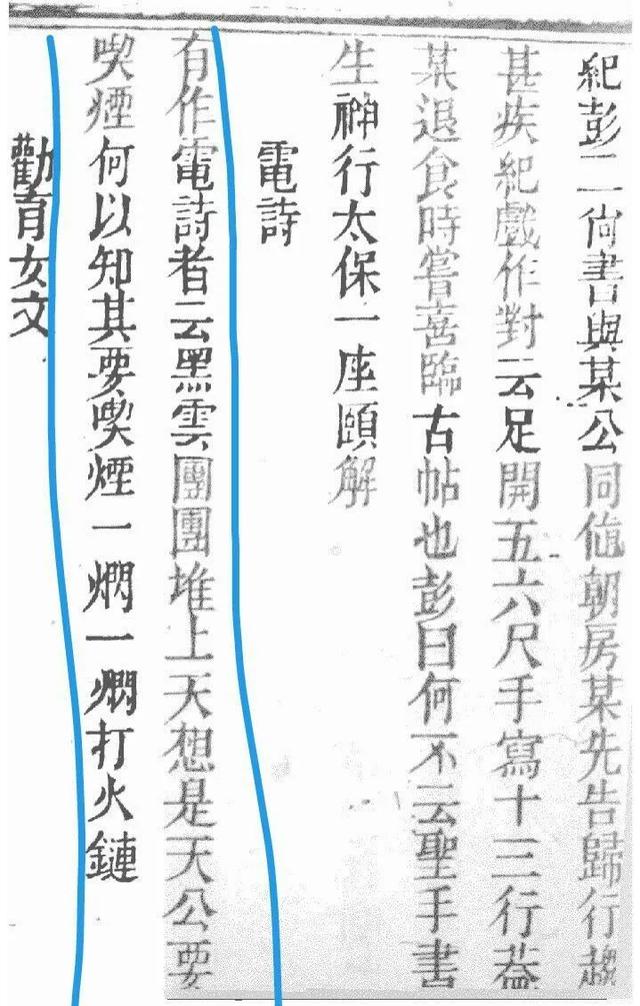 紀彭二尙書與某公同値朝房某先告歸行趨
甚疾紀戲作對云足開五六尺手寫十三行蓋
某退食時嘗喜臨古帖也彭曰何不云聖手書
生神行太保一座頤解
電詩
有作電詩者云黑雲團團堆上天想是天公要
喫煙何以知其要喫煙一爓一爓打火鏈
勸育女文